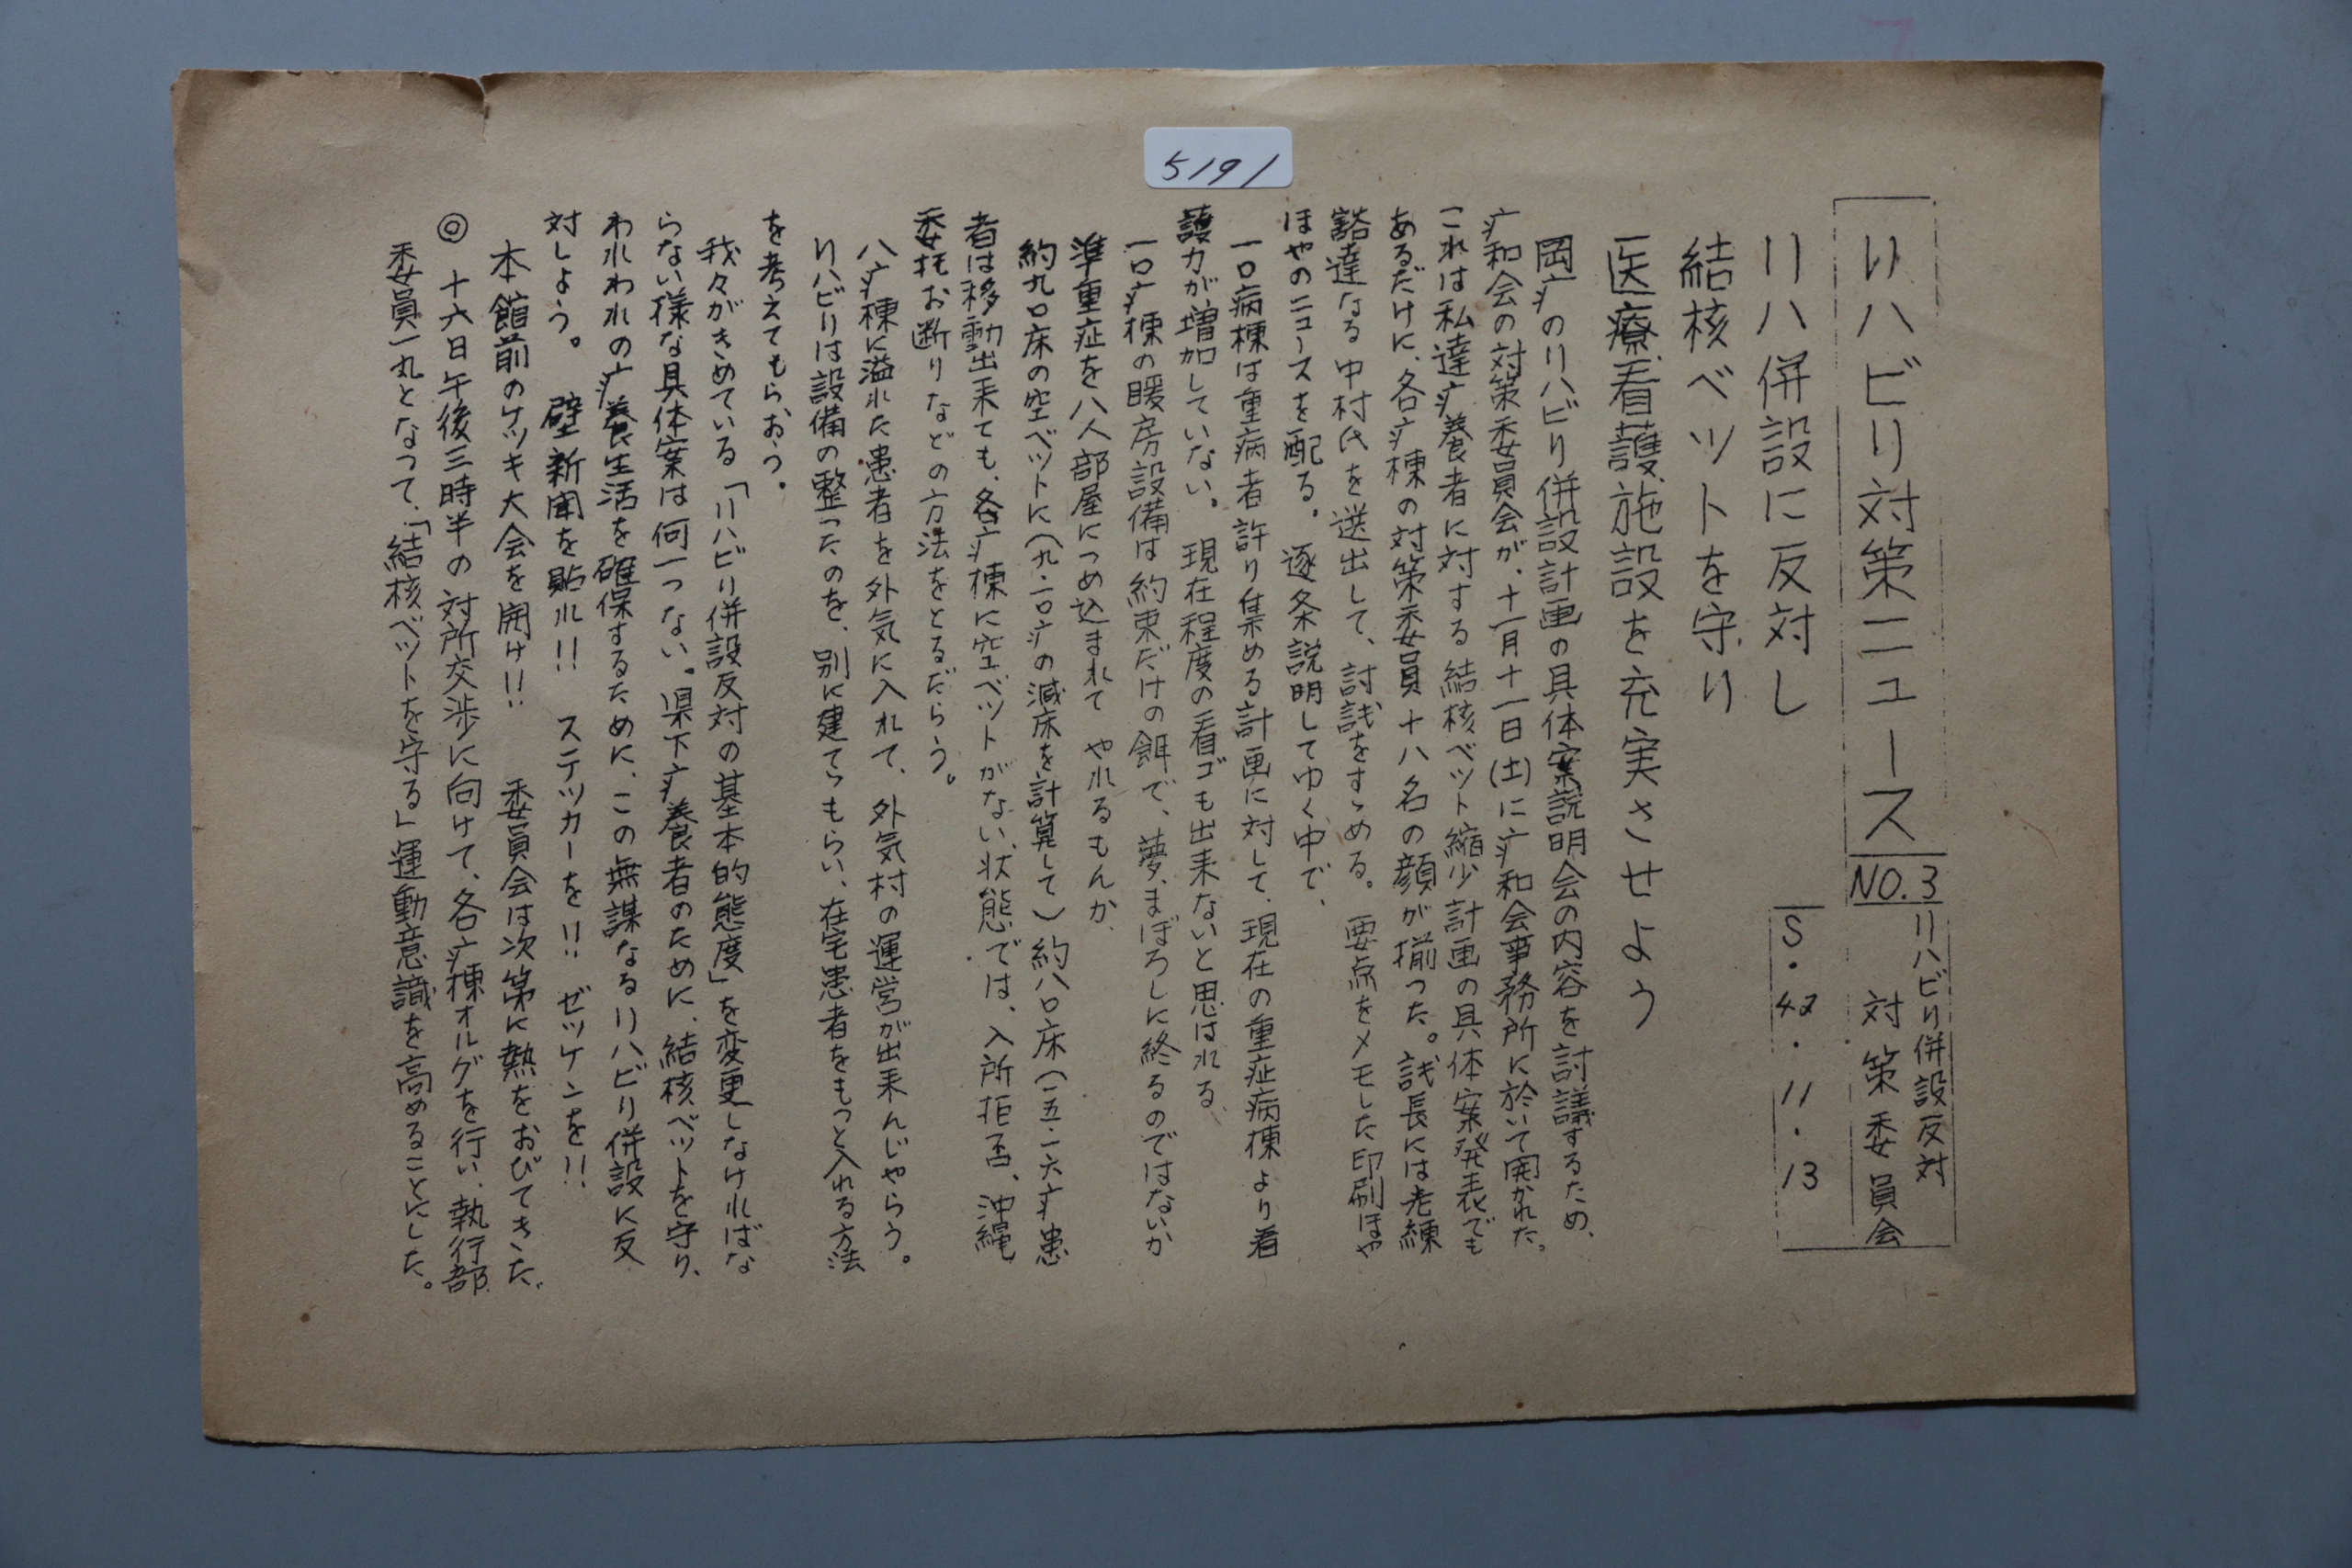 5191
リハビリ対策ニュース
NO.3
リハビリ併設反対
対策委員会
S・42・11・13
リハ併設に反対し
結核ベットを守り
医療看護施設を充実させよう
岡疒のリハビリ併設計画の具体案説明会の内容を討議するため、
疒和会の対策委員会が、十一月十一日(土)に疒和会事務所に於いて開かれた。
これは私達疒養者に対する結核ベット縮少計画の具体案発表でも
あるだけに、各疒棟の対策委員十八名の顔が揃った。議長には老練
豁達なる中村氏を送出して、討議をすゝめる。要点をメモした印刷ほや
ほやのニュースを配る。逐条説明してゆく中で、
一〇病棟は重病者許り集める計画に対して、現在の重症病棟より看
護力が増加していない。現在程度の看ゴも出来ないと思はれる、
一〇疒棟の暖房設備は約束だけの餌で、夢、まぼろしに終るのではないか
準重症を八人部屋につめ込まれて やれるもんか、
約九〇床の空ベットに(九・一〇疒の減床を計算して)約八〇床(一五・一六疒患
者は移動出来ても、各疒棟に空ベットがない、状態では、入所拒否、沖縄
委托お断りなどの方法をとるだらう。
八疒棟に溢れた患者を外気に入れて、外気村の運営が出来んじゃらう。
リハビリは設備の整ったのを、別に建てゝもらい、在宅患者をもっと入れる方法
を考えてもらおう。
我々がきめている「リハビリ併設反対の基本的態度」を変更しなければな
らない様な具体案は何一つない。県下疒養者のために、結核ベットを守り、
われわれの疒養生活を確保するために、この無謀なるリハビリ併設に反
対しよう。 壁新聞を貼れ!! ステッカーを!! ゼッケンを!!
本館前のケッキ大会を開け!! 委員会は次第に熱をおびてきた、
◎ 十六日午後三時半の対所交渉に向けて、各疒棟オルグを行い、執行部
委員一丸となって、「結核ベットを守る」運動意識を高めることにした。